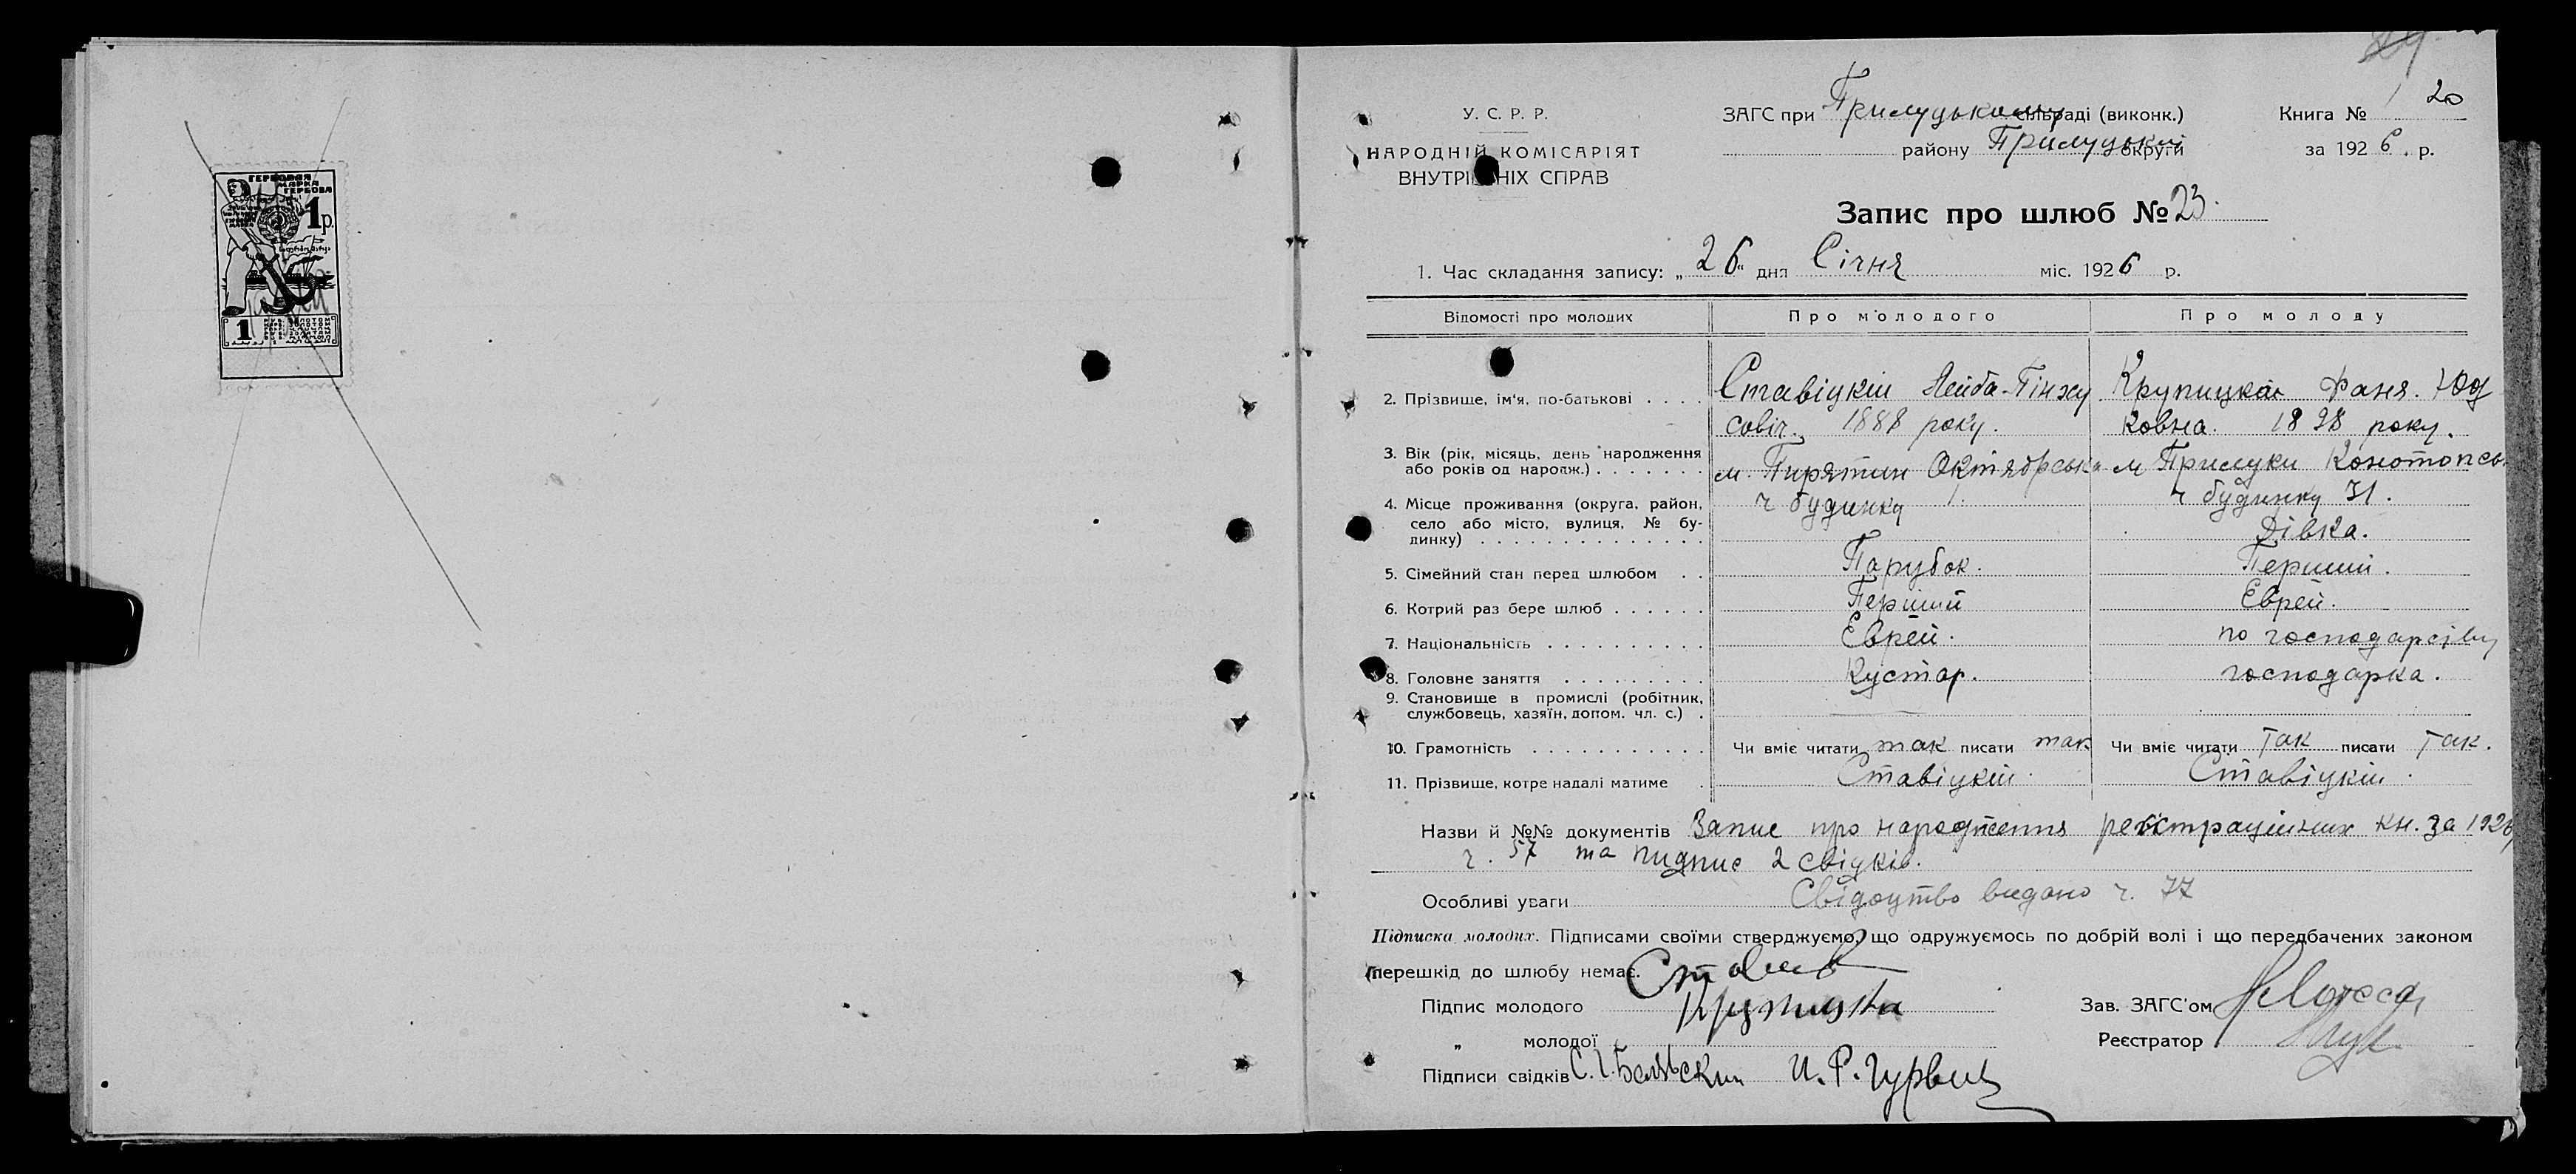 ГЕРБОВАЯ
МАРКА
ГЕРБОВА
1 р.
1
У. С. Р. Р.
НАРОДНІЙ КОМІСАРІЯТ
ВНУТРІШНІХ СПРАВ
ЗАГС при Прилуцькому сільраді (виконк.)
району Прилуцькій округи
Книга № 20
за 1926. р.
Запис про шлюб № 23.
1. Час складання запису: „26“ дня Січня міс. 1926 р.
Відомості про молодих Про молодого Про молоду
2. Прізвище, ім'я, по-батькові . . . . Ставіцкій Лейба-Пінху Крупицкая Фаня. Юд
совіч. 1888 року. ковна. 1898 року.
3. Вік (рік, місяць, день народження
або років од народж.) . . . . . . . м. Пирятин Октяборська м Прилуки Конотопсь.
4. Місце проживання (округа, район, ч будинку 1. ч будинку 31.
село або місто, вулиця, № бу-
динку) . . . . . . . . . . . . . . Дівка.
5. Сімейний стан перед шлюбом . . Парубок. Перший.
6. Котрий раз бере шлюб . . . . . . Перший Еврей.
7. Національність . . . . . . . . . . Еврей. по господарству
8. Головне заняття . . . . . . . . . Кустар. господарка.
9. Становище в промислі (робітник,
службовець, хазяїн, допом. чл. с.) .
10. Грамотність . . . . . . . . . . . Чи вміє читати так писати так Чи вміє читати Так писати Так.
11. Прізвище, котре надалі матиме . Ставіцкій. Ставіцкій.
Назви й №№ документів Запис про народження реєстраційних кн. за 1926
ч. 57 та пидпис 2 свідків.
Особливі уваги Свідоцтво видано ч. 77
Підписка молодих. Підписами своїми стверджуємо, що одружуємось по добрій волі і що передбачених законом
перешкід до шлюбу немає.
Підпис молодого Крупицка Зав. ЗАГС'ом
„ молодої Реєстратор
Підписи свідків И. Р. Гурвич